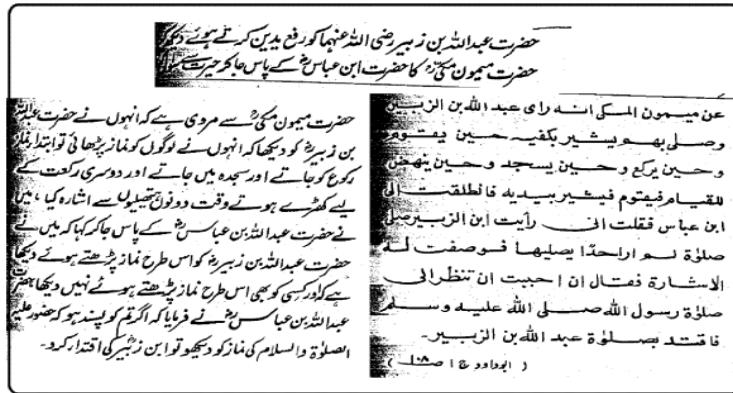 حضرت عبداللہ بن زبیر رضی اللہ عنہما کو رفع یدین کرتے ہوئے دیکھ کر
حضرت میمون مکیؒ کا حضرت ابن عباسؓ کے پاس جا کر حیرت سے سوال
عن میمون المکی انه رای عبد الله بن الزبیر
وصلی بهم یشیر بکفیه حین یقوم
وحین یرکع وحین یسجد وحین ینهض
للقیام فیقوم فیشیر بیدیه فانطلقت الی
ابن عباس فقلت انی رأیت ابن الزبیر صلی
صلوٰة لم ار احدًا یصلیها فوصفت له
الاشارة فقال ان احببت ان تنظر الی
صلوٰة رسول الله صلی الله علیه وسلم
فاقتد بصلوٰة عبد الله بن الزبیر۔
( ابوداود ج ١ ص ١٠٨ )
حضرت میمون مکیؒ سے مروی ہے کہ انہوں نے حضرت عبداللہ
بن زبیرؓ کو دیکھا کہ انہوں نے لوگوں کو نماز پڑھائی تو ابتداء نماز
رکوع کو جاتے اور سجدہ میں جاتے اور دوسری رکعت کے
لیے کھڑے ہوتے وقت دونوں ہتھیلیوں سے اشارہ کیا، میں
نے حضرت عبداللہ بن عباسؓ کے پاس جا کر کہا کہ میں نے
حضرت عبداللہ بن زبیرؓ کو اس طرح نماز پڑھتے ہوئے دیکھا
ہے کہ اور کسی کو بھی اس طرح نماز پڑھتے ہوئے نہیں دیکھا حضرت
عبداللہ بن عباسؓ نے فرمایا کہ اگر تم کو پسند ہو کہ حضور علیہ
الصلوٰة والسلام کی نماز کو دیکھو تو ابن زبیرؓ کی اقتداء کرو۔